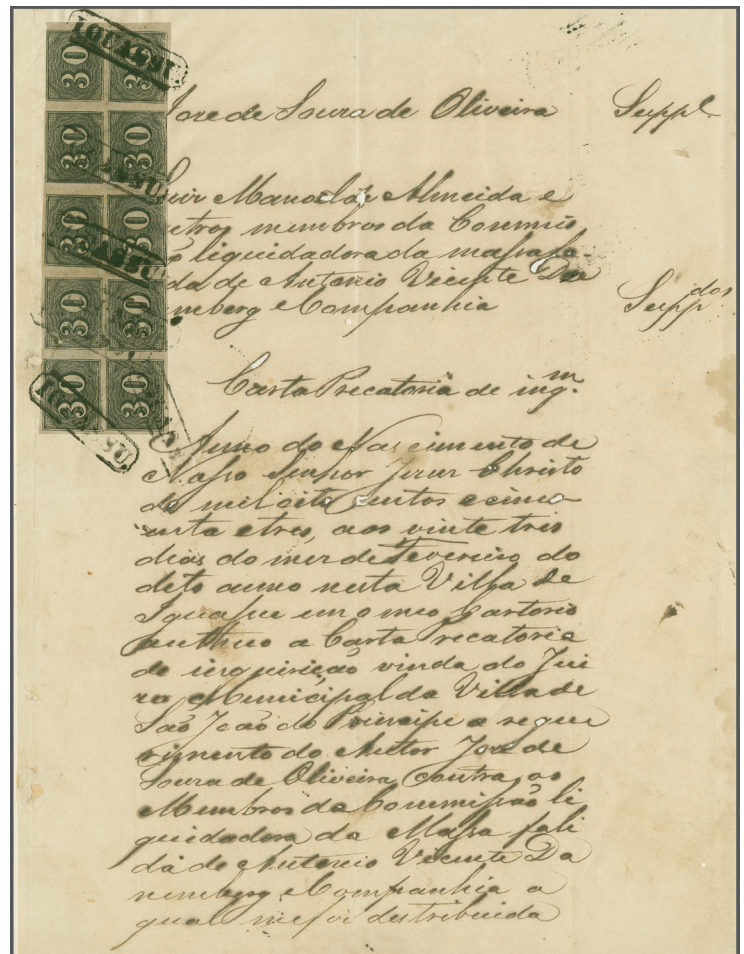 José de Souza de Oliveira Suppl.
Luis Manoel de Almeida e
outros membros da Commis
são liquidadora da massa fa-
lida de Antonio Vicente Da
nemberg e Companhia Suppdos
Carta Precatoria de inqm.
Anno do Nascimento de
Nosso Senhor Jesus Christo
de mil oito centos e cinco
enta e tres, aos vinte tres
dias do mez de Fevereiro do
dito anno nesta Villa de
em o meo Cartorio
authuo a Carta Precatoria
de inquirição vinda do Jui
zo Municipal da Villa de
São João do Principe a reque
rimento do Autor José de
Souza de Oliveira, contra os
Membros da Commissão li
quidadora da Massa fali
da de Antonio Vicente Da
nemberg e Companhia a
qual me foi destribuida
30 30
30 30
30 30
30 30
30 30
IGUASSU.
ASSU
ASSU
IGUASSU.